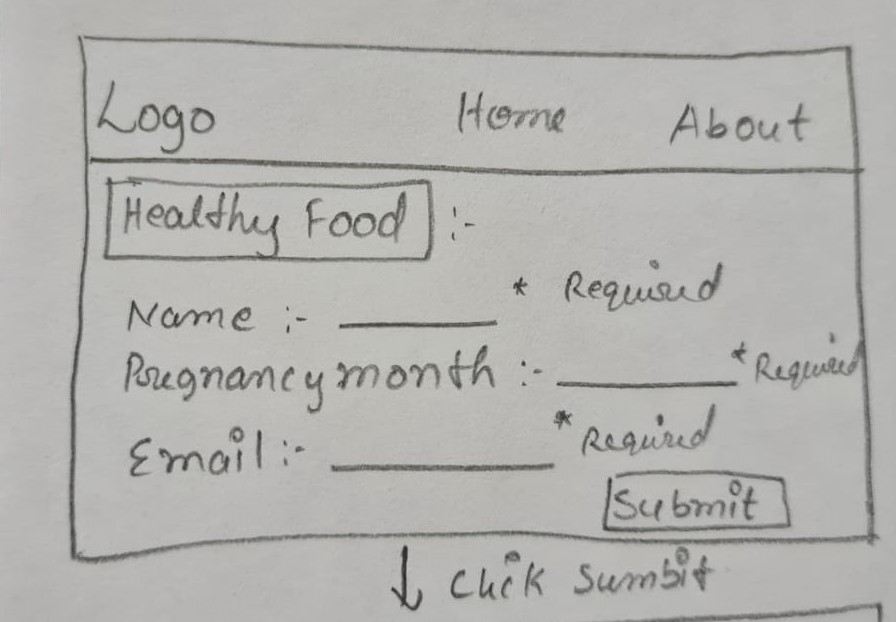 Logo Home About
Healthy Food :-
Name :- ______ * Required
Pregnancy month :- ______ * Required
Email :- ______ * Required
Submit
↓ Click Sumbit